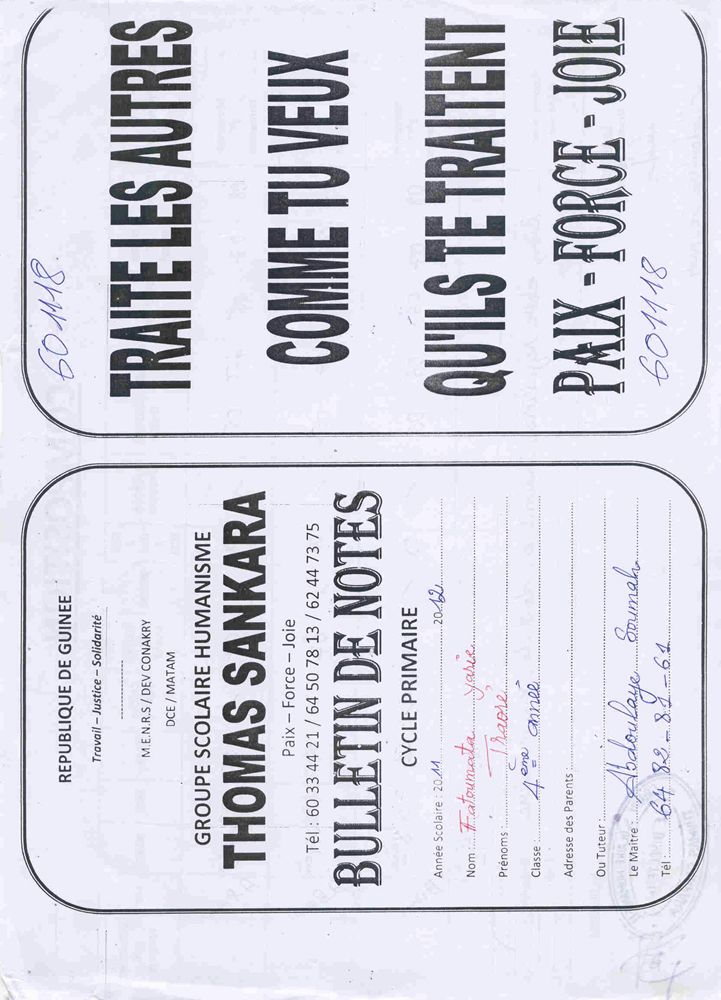 REPUBLIQUE DE GUINEE
Travail – Justice – Solidarité
M.E.N.R.S / DEV CONAKRY
DCE / MATAM
GROUPE SCOLAIRE HUMANISME
THOMAS SANKARA
Paix – Force – Joie
Tél : 60 33 44 21 / 64 50 78 13 / 62 44 73 75
BULLETIN DE NOTES
CYCLE PRIMAIRE
Année Scolaire : 2011 2012
Nom : Fatoumata Yarie
Prénoms : Traoré
Classe : 4ème année
Adresse des Parents :
Ou Tuteur :
Le Maitre : Abdoulaye Soumah
Tél : 64-82-87-61
601118
TRAITE LES AUTRES
COMME TU VEUX
QU'ILS TE TRAITENT
PAIX - FORCE - JOIE
601118